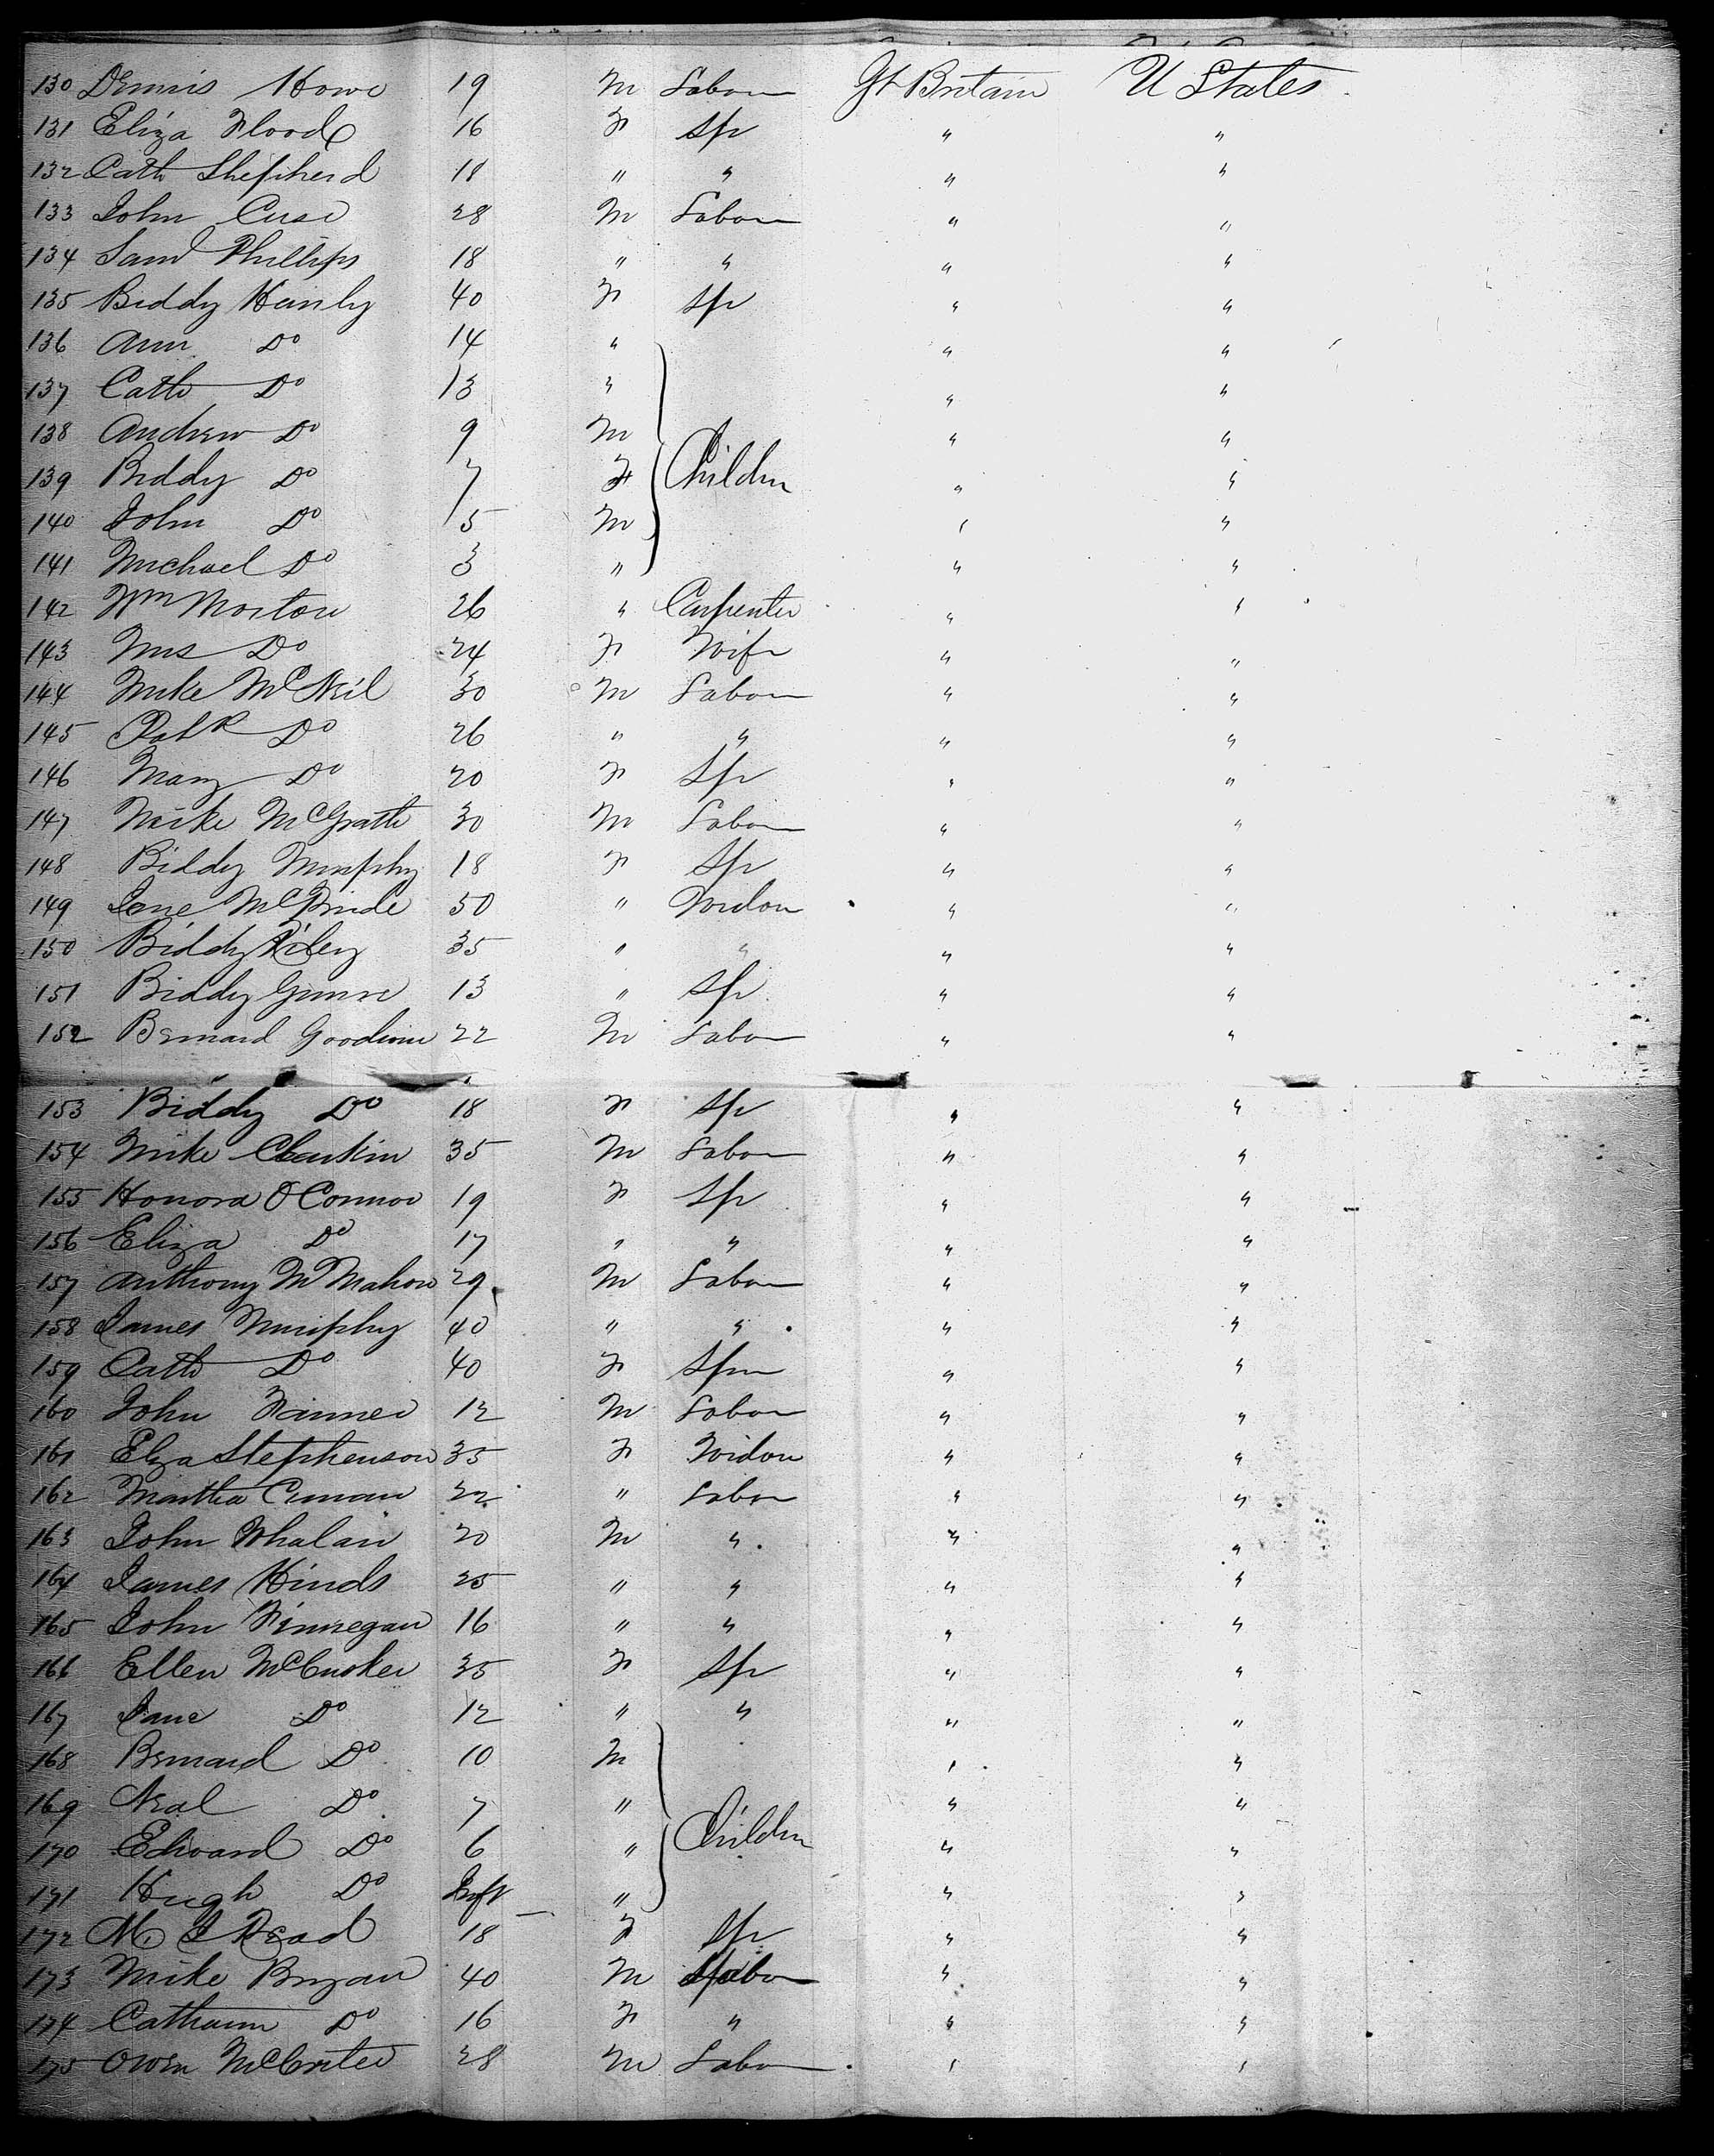 130 Dennis Howe 19 M Labor Gt Britain U States
131 Eliza Flood 16 F Sp " "
132 Cath Shepherd 18 " " " "
133 John Cuse 28 M Labor " "
134 Saml Phillips 18 " " " "
135 Biddy Hanly 40 F Sp " "
136 Ann Do 14 " " "
137 Cath Do 13 " " "
138 Andrew Do 9 M " "
139 Biddy Do 7 F Children " "
140 John Do 5 M " "
141 Michael Do 3 " " "
142 Wm Morton 26 " Carpenter " "
143 Mrs Do 24 F Wife " "
144 Mike McNeil 30 M Labor " "
145 Patk Do 26 " " " "
146 Mary Do 20 F Sp " "
147 Mike McGrath 30 M Labor " "
148 Biddy Murphy 18 F Sp " "
149 Jane McBride 50 " Widow " "
150 Biddy Riley 35 " " " "
151 Biddy 13 " Sp " "
152 Bernard Goodwin 22 M Labor " "
153 Biddy Do 18 F Sp " "
154 Mike Clarkin 35 M Labor " "
155 Honora O Connor 19 F Sp " "
156 Eliza Do 17 " " " "
157 Anthony McMahon 29 M Labor " "
158 James Murphy 40 " " " "
159 Cath Do 40 F Spn " "
160 John 12 M Labor " "
161 Eliza Stephenson 35 F Widow " "
162 Martha 22 " Labor " "
163 John Whalan 20 M " " "
164 James Hinds 25 " " " "
165 John Finnegan 16 " " " "
166 Ellen McCusker 35 F Sp " "
167 Jane Do 12 " " " "
168 Bernard Do 10 M " "
169 Neal Do 7 " " "
170 Edward Do 6 " Children " "
171 Hugh Do Inft " " "
172 M. J Read 18 F Sp " "
173 Mike Bryan 40 M Labor " "
174 Catharin Do 16 F " " "
175 Owen 28 M Labor " "